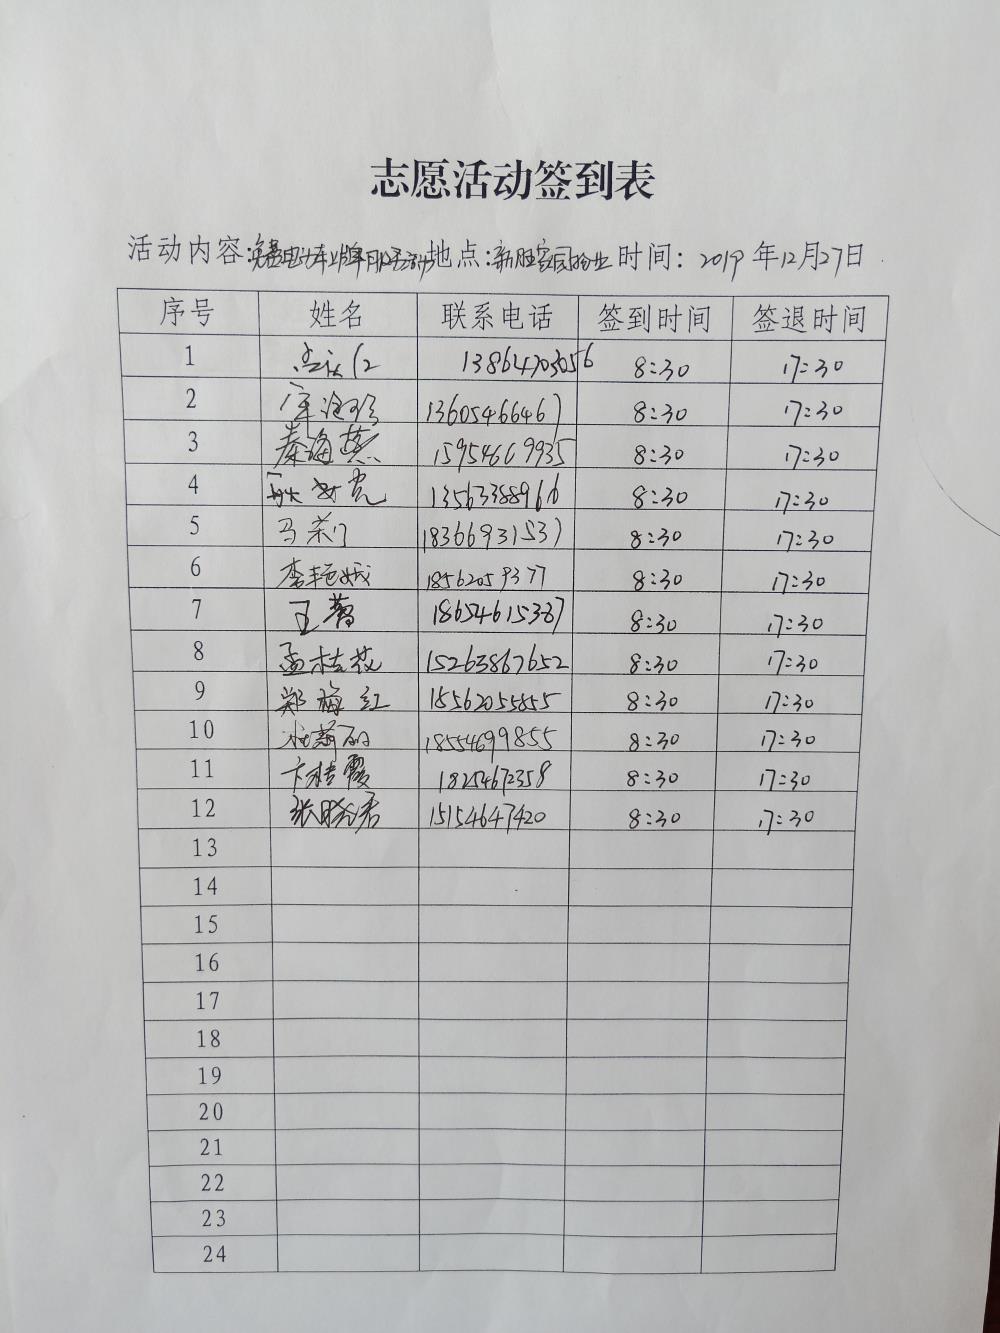 志愿活动签到表
活动内容:免费电动车上牌 地点:新旺家园物业 时间:2019年12月27日
序号 姓名 联系电话 签到时间 签退时间
1 13864703056 8:30 17:30
2 13605466467 8:30 17:30
3 秦海燕 15954669935 8:30 17:30
4 13563388966 8:30 17:30
5 马莉 18366931537 8:30 17:30
6 李艳娥 18562059377 8:30 17:30
7 王蕾 18654615387 8:30 17:30
8 孟桂花 15263867652 8:30 17:30
9 郑梅红 18562055855 8:30 17:30
10 18554699855 8:30 17:30
11 卞桂霞 18254672358 8:30 17:30
12 张晓君 15154647420 8:30 17:30
13
14
15
16
17
18
19
20
21
22
23
24